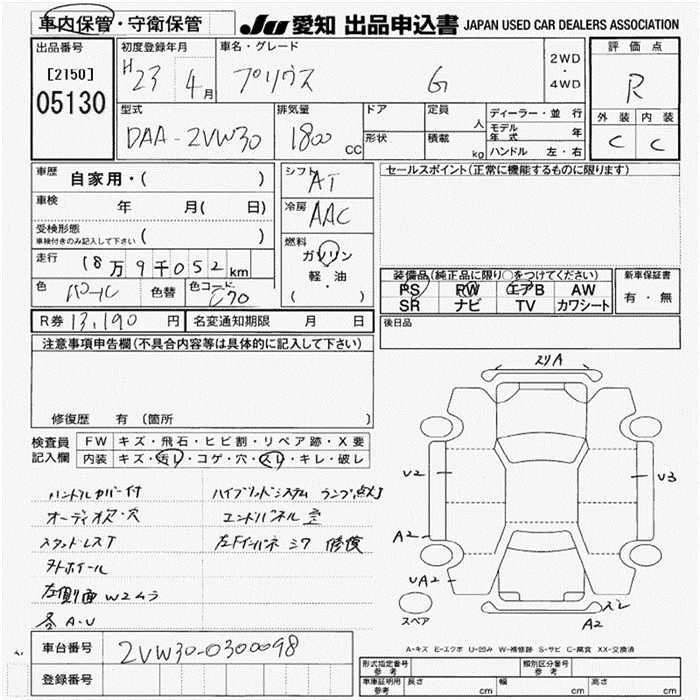 車内保管・守衛保管
JU 愛知 出品申込書 JAPAN USED CAR DEALERS ASSOCIATION
出品番号
[2150]
05130
初度登録年月
H23 4月
車名・グレード
プリウス G
2WD
・
4WD
評価点
R
外装 内装
C C
型式
DAA-2VW30
排気量
1800 CC
ドア
形状
定員 人
積載 kg
ディーラー・並行
モデル年式 年
ハンドル 左・右
車歴 自家用・( )
車検 年 月( 日)
受検形態
車検付きのみ記入して下さい ( )
走行 18万9千052km
色 パール 色替 色コード 070
シフト AT
冷房 AAC
燃料
ガソリン
軽・油
( )
セールスポイント(正常に機能するものに限ります)
装備品(純正品に限り○をつけてください)
PS PW エアB AW
SR ナビ TV カワシート
新車保証書
有・無
後日品
R券 13,190円 名変通知期限 月 日
注意事項申告欄(不具合内容等は具体的に記入して下さい)
修復歴 有 (箇所 )
検査員記入欄
FW キズ・飛石・ヒビ割・リペア跡・X要
内装 キズ・汚レ・コゲ・穴・スレ・キレ・破レ
ハンドルカバー付
オーディオ欠・穴
スタッドレスT
外ホイール
左側面W2ムラ
全A・U
ハイブリッドシステム ランプ点灯
エンドパネル
左Fインパネ 修復
スリA
U2
U3
A2
UA2
ズレ
A2
スペア
A-キズ E-エクボ U-凹み W-補修跡 S-サビ C-腐食 XX-交換済
車台番号 2VW30-0300098
登録番号
形式指定番号
参考
類別区分番号
参考
車庫証明用
参考
長さ cm 幅 cm 高さ cm